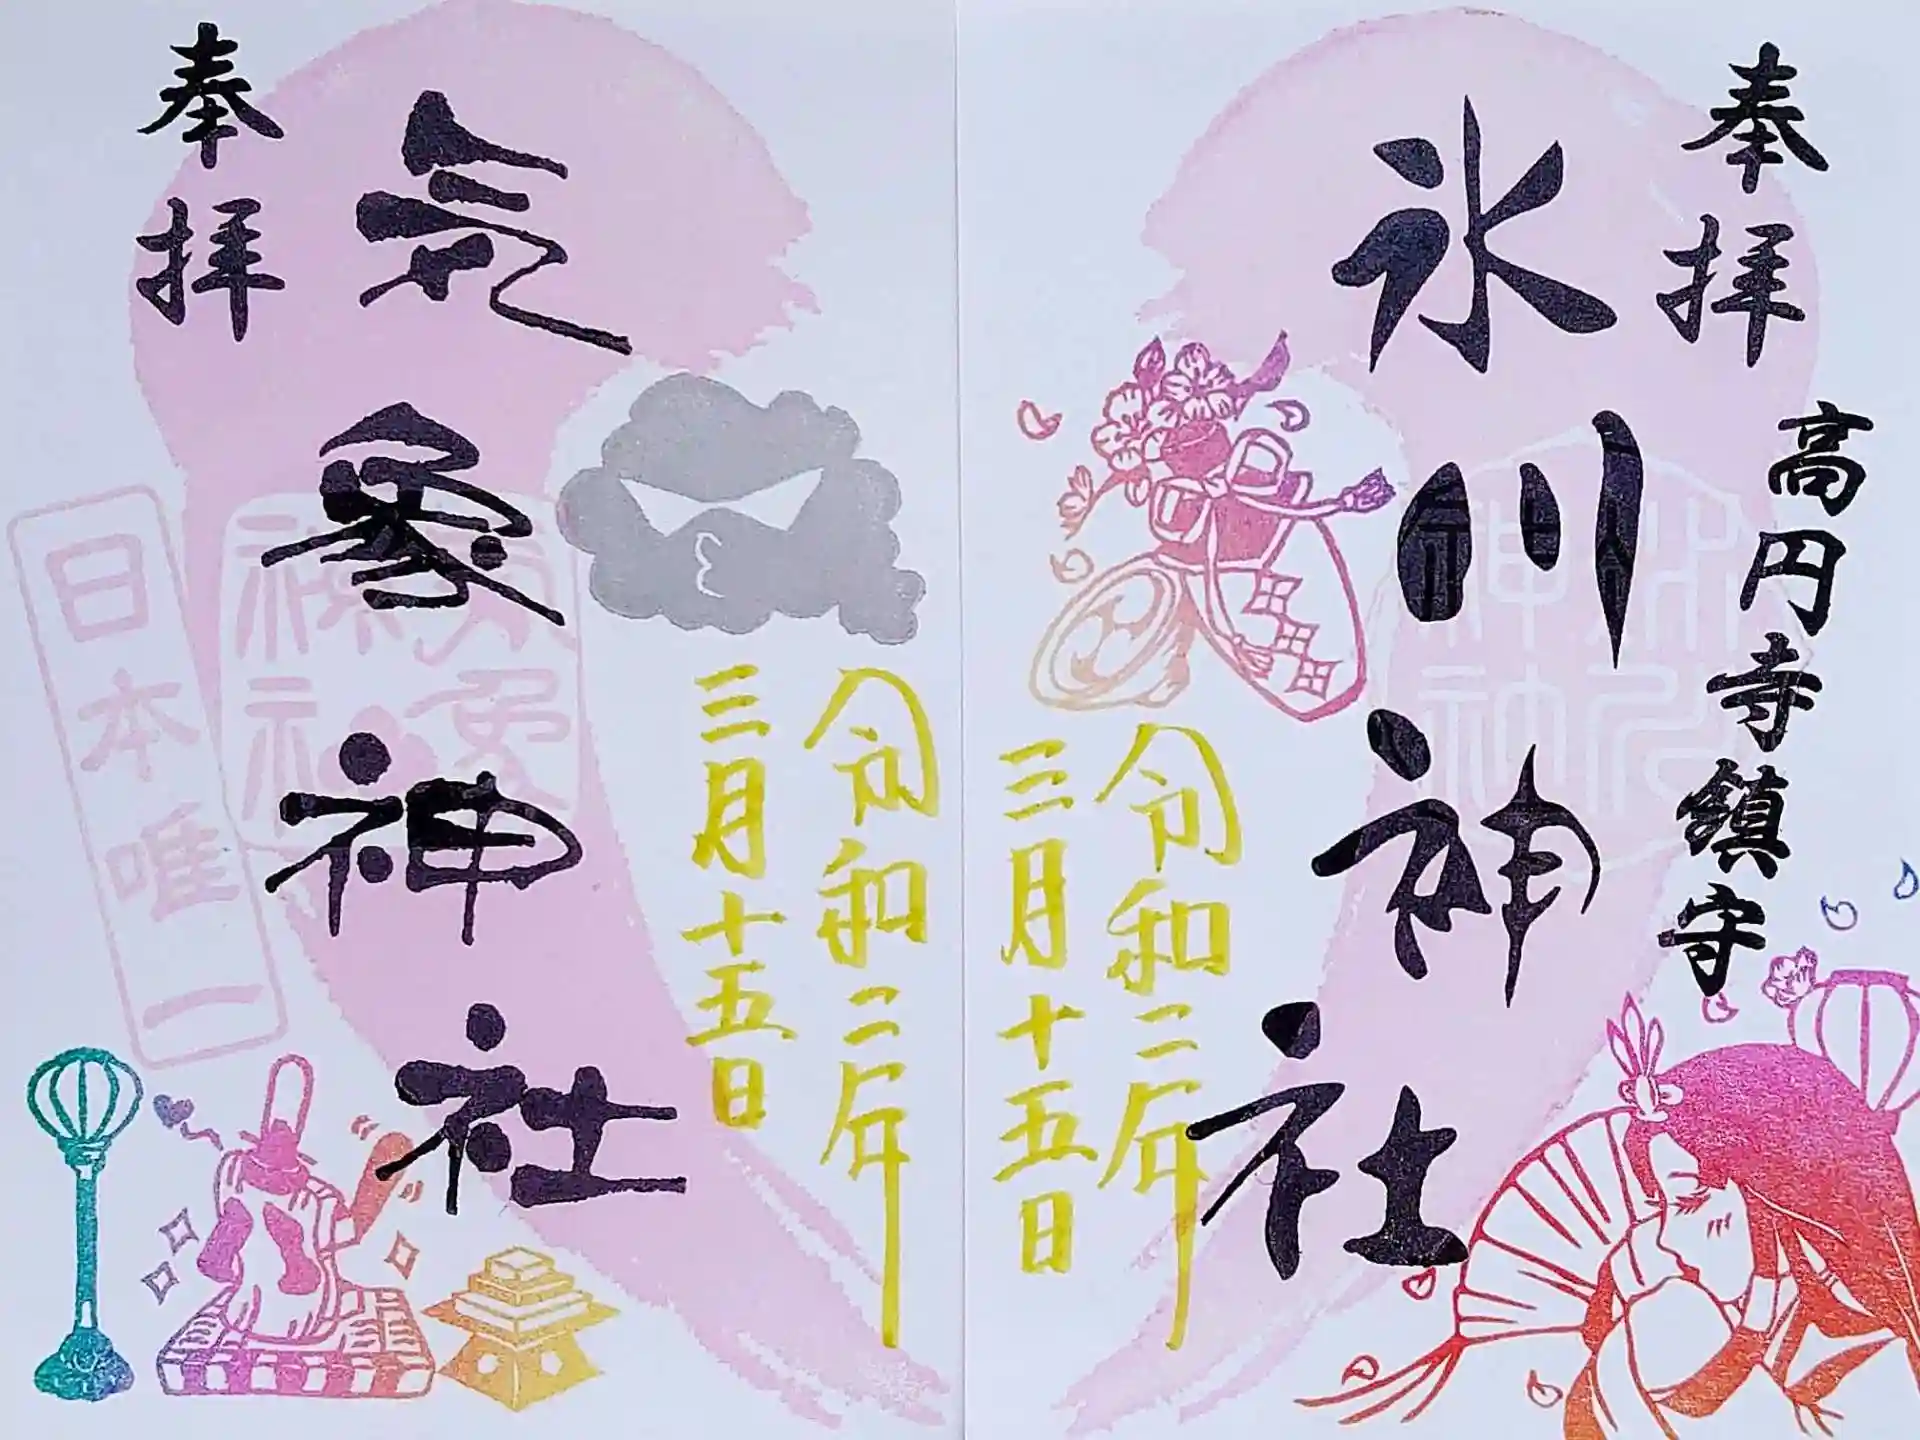 奉拝
高円寺鎮守
氷川神社
令和二年
三月十五日
奉拝
気象神社
令和二年
三月十五日
日本唯一
気象
神社